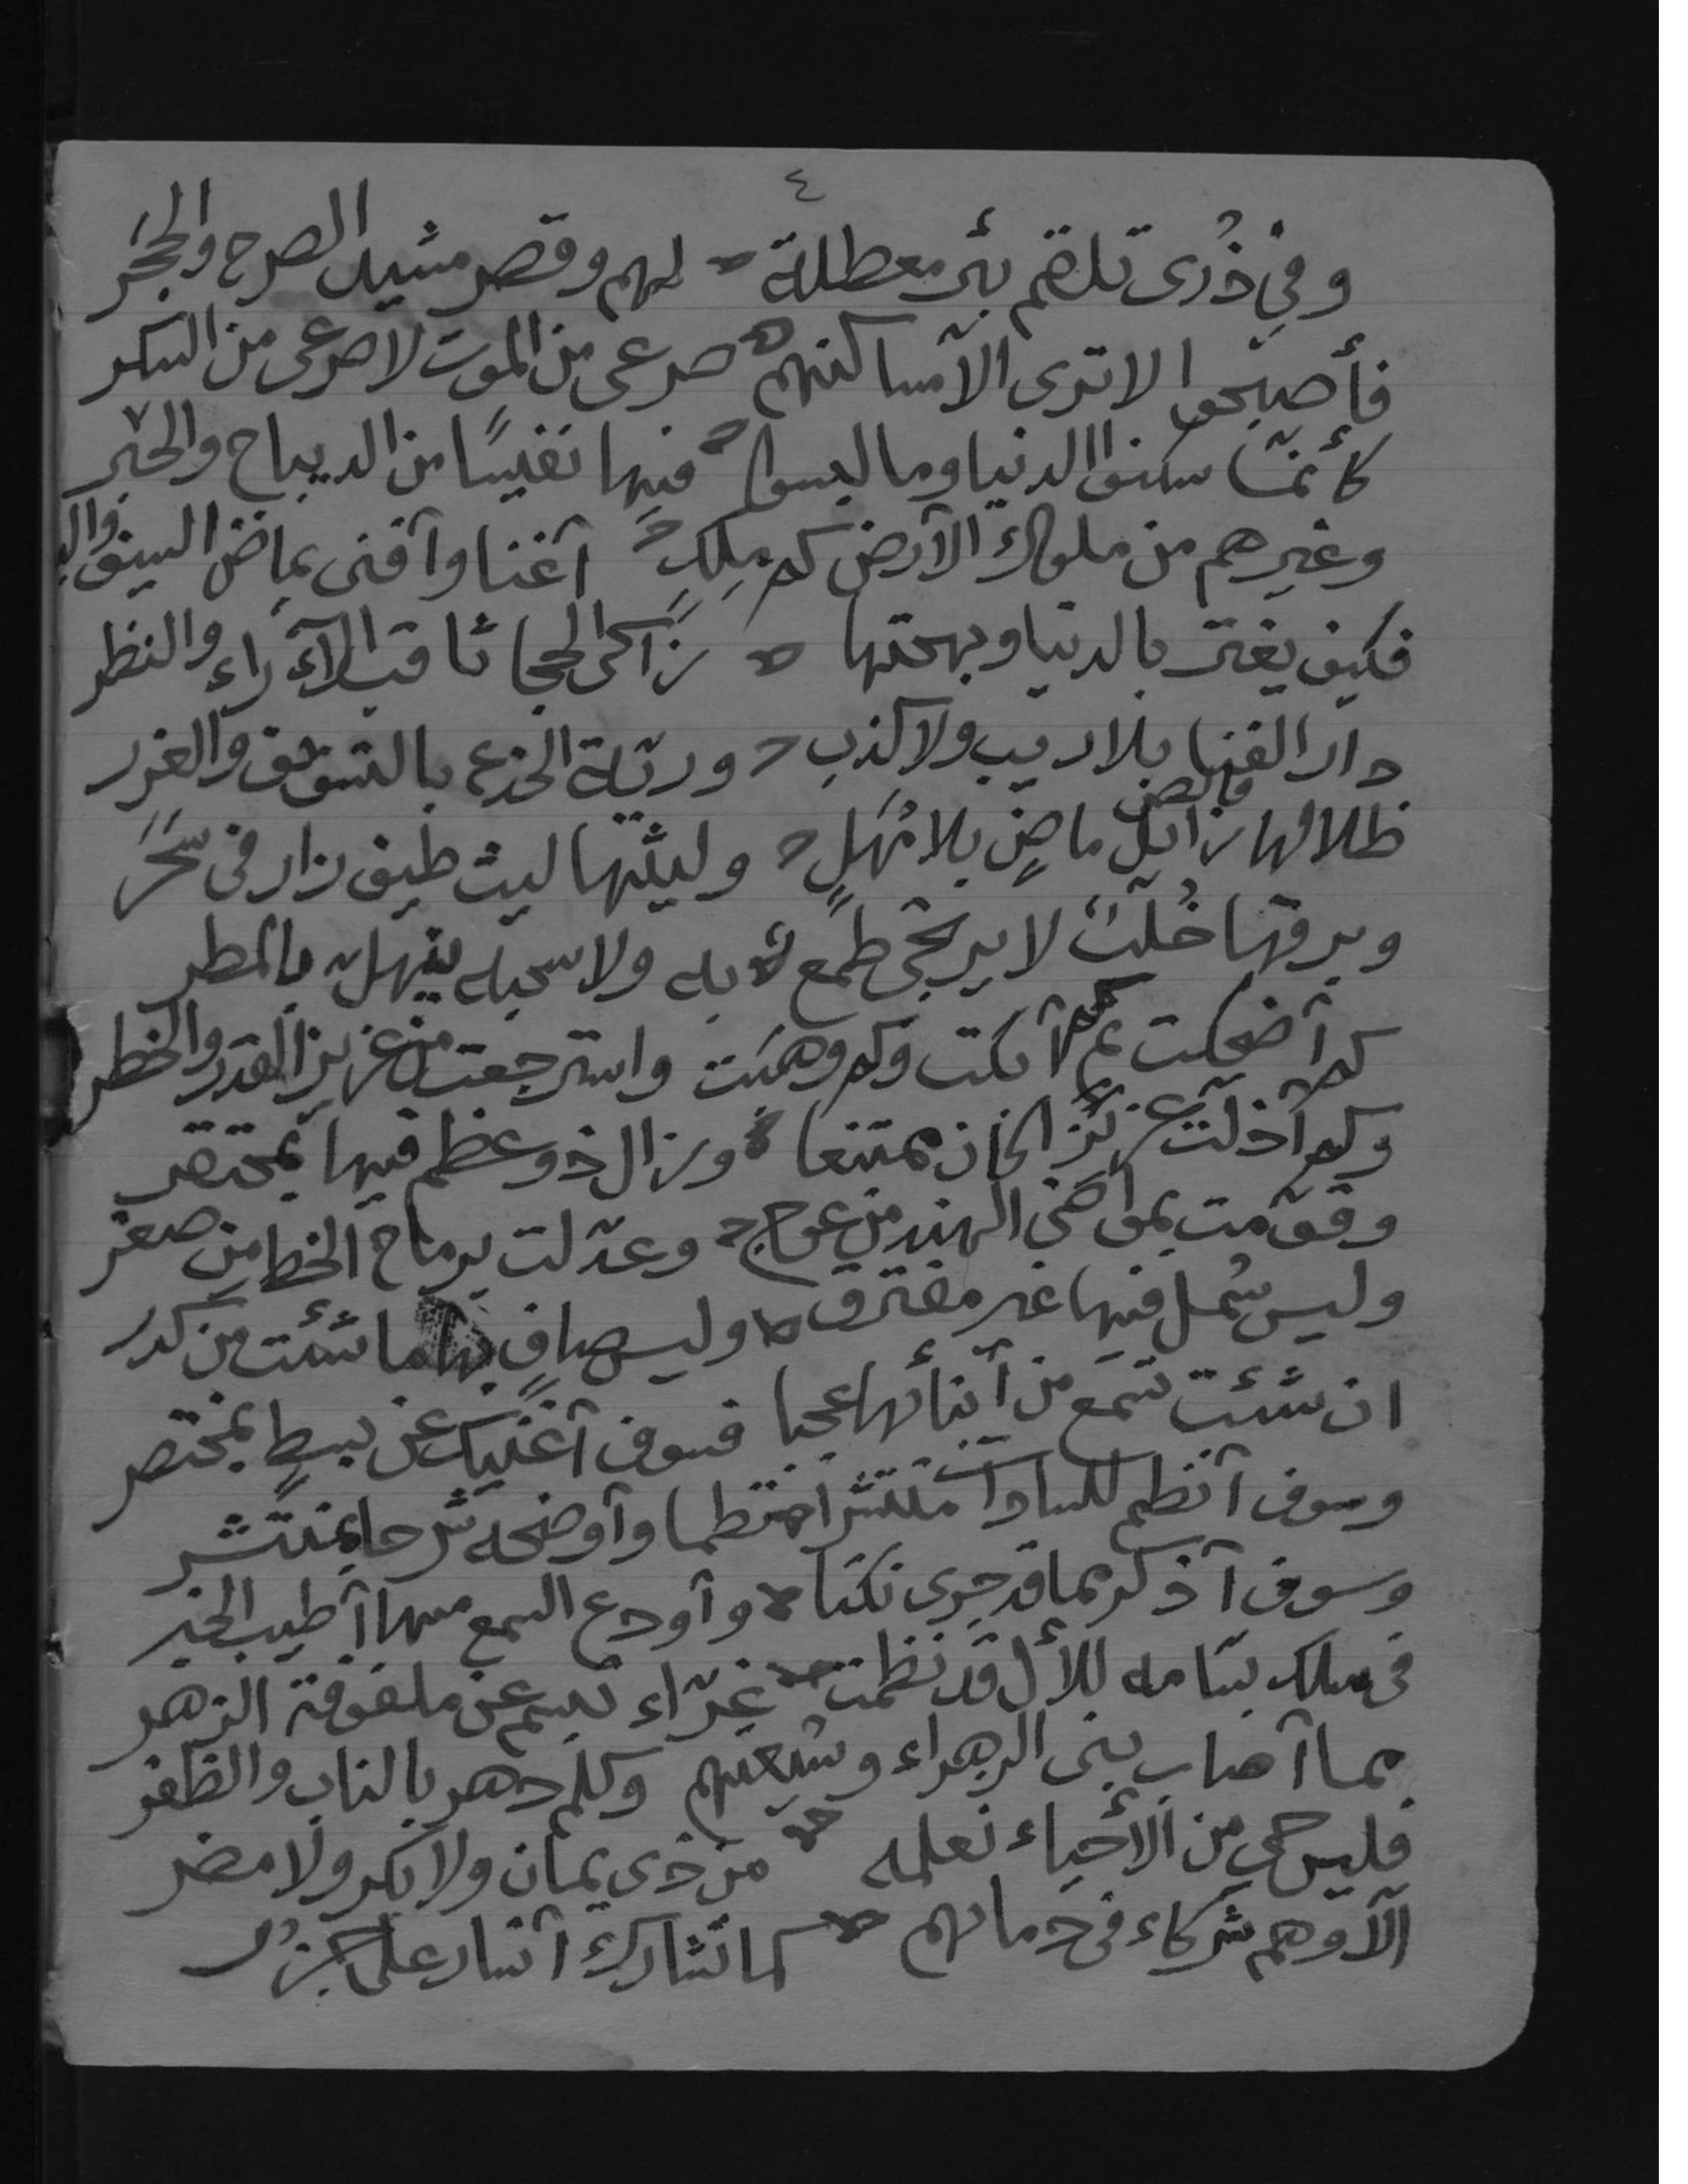 ٤
وفي ذُرى تلقم بئر معطلة لهم وقصر مشيد الصرح والحجَر
فأصبحوا لا ترى الآ مساكنهم صرعى من الموت لا صرعى من السكر
كأنما سكنوا الدنيا وما لبسوا فيها نفيسًا من الديباج والحبر
وغيرهم من ملوك الآرض كم ملكٍ آغنا وآفنى بماض السيف
فكيف يغتر بالدنيا وبهجتها زاكى الحجا ثاقب الآراء والنظر
دار الفنا بلا ريب ولا كذب وربّة الخدع بالتسويف والغرر
ظلالها زائل ماضٍ بلا مَهَلٍ وليثها ليث طيف زار فى سَحَر
وبرقها خُلّبٌ لا يرتجى طمع لابه ولا سحبه ينهل بالمطر
كم آضحكت ثم آبكت وكم وهبَت واسترجعت من عزيز القدر والخطر
وكم آذلت عزيزا كان ممتنعا وزال ذو عظم فيها بمحتقر
وقوّمت بمواضى الهند من عوج وعدّلت برماح الخط من صعر
وليس شمل فيها غير مفترق وليس صافٍ بها ما شئت من كدر
ان شئت تسمع من آنبائها عجبا فسوف آغنيك عن بسطٍ بمختصر
وسوف آنظم للسادات منتثرا منتظما وآوضحه شرحا بمنتشر
وسوف آذكر مما قد جرى نكتا وآودع السمع منها آطيب الخبر
فى سلك بسامه للأل قد نظمت غرّاء تبسم عن ملفوفة الزهر
مما آصاب بنى الزهراء وشيعتهم وكلم دهر بالناب والظفر
فليس حي من الأحياء نعلمه من ذى يمان ولا بكر ولا مضر
الآ وهم شركاء فى دمائهم كما تشارك آيسار على جزُر